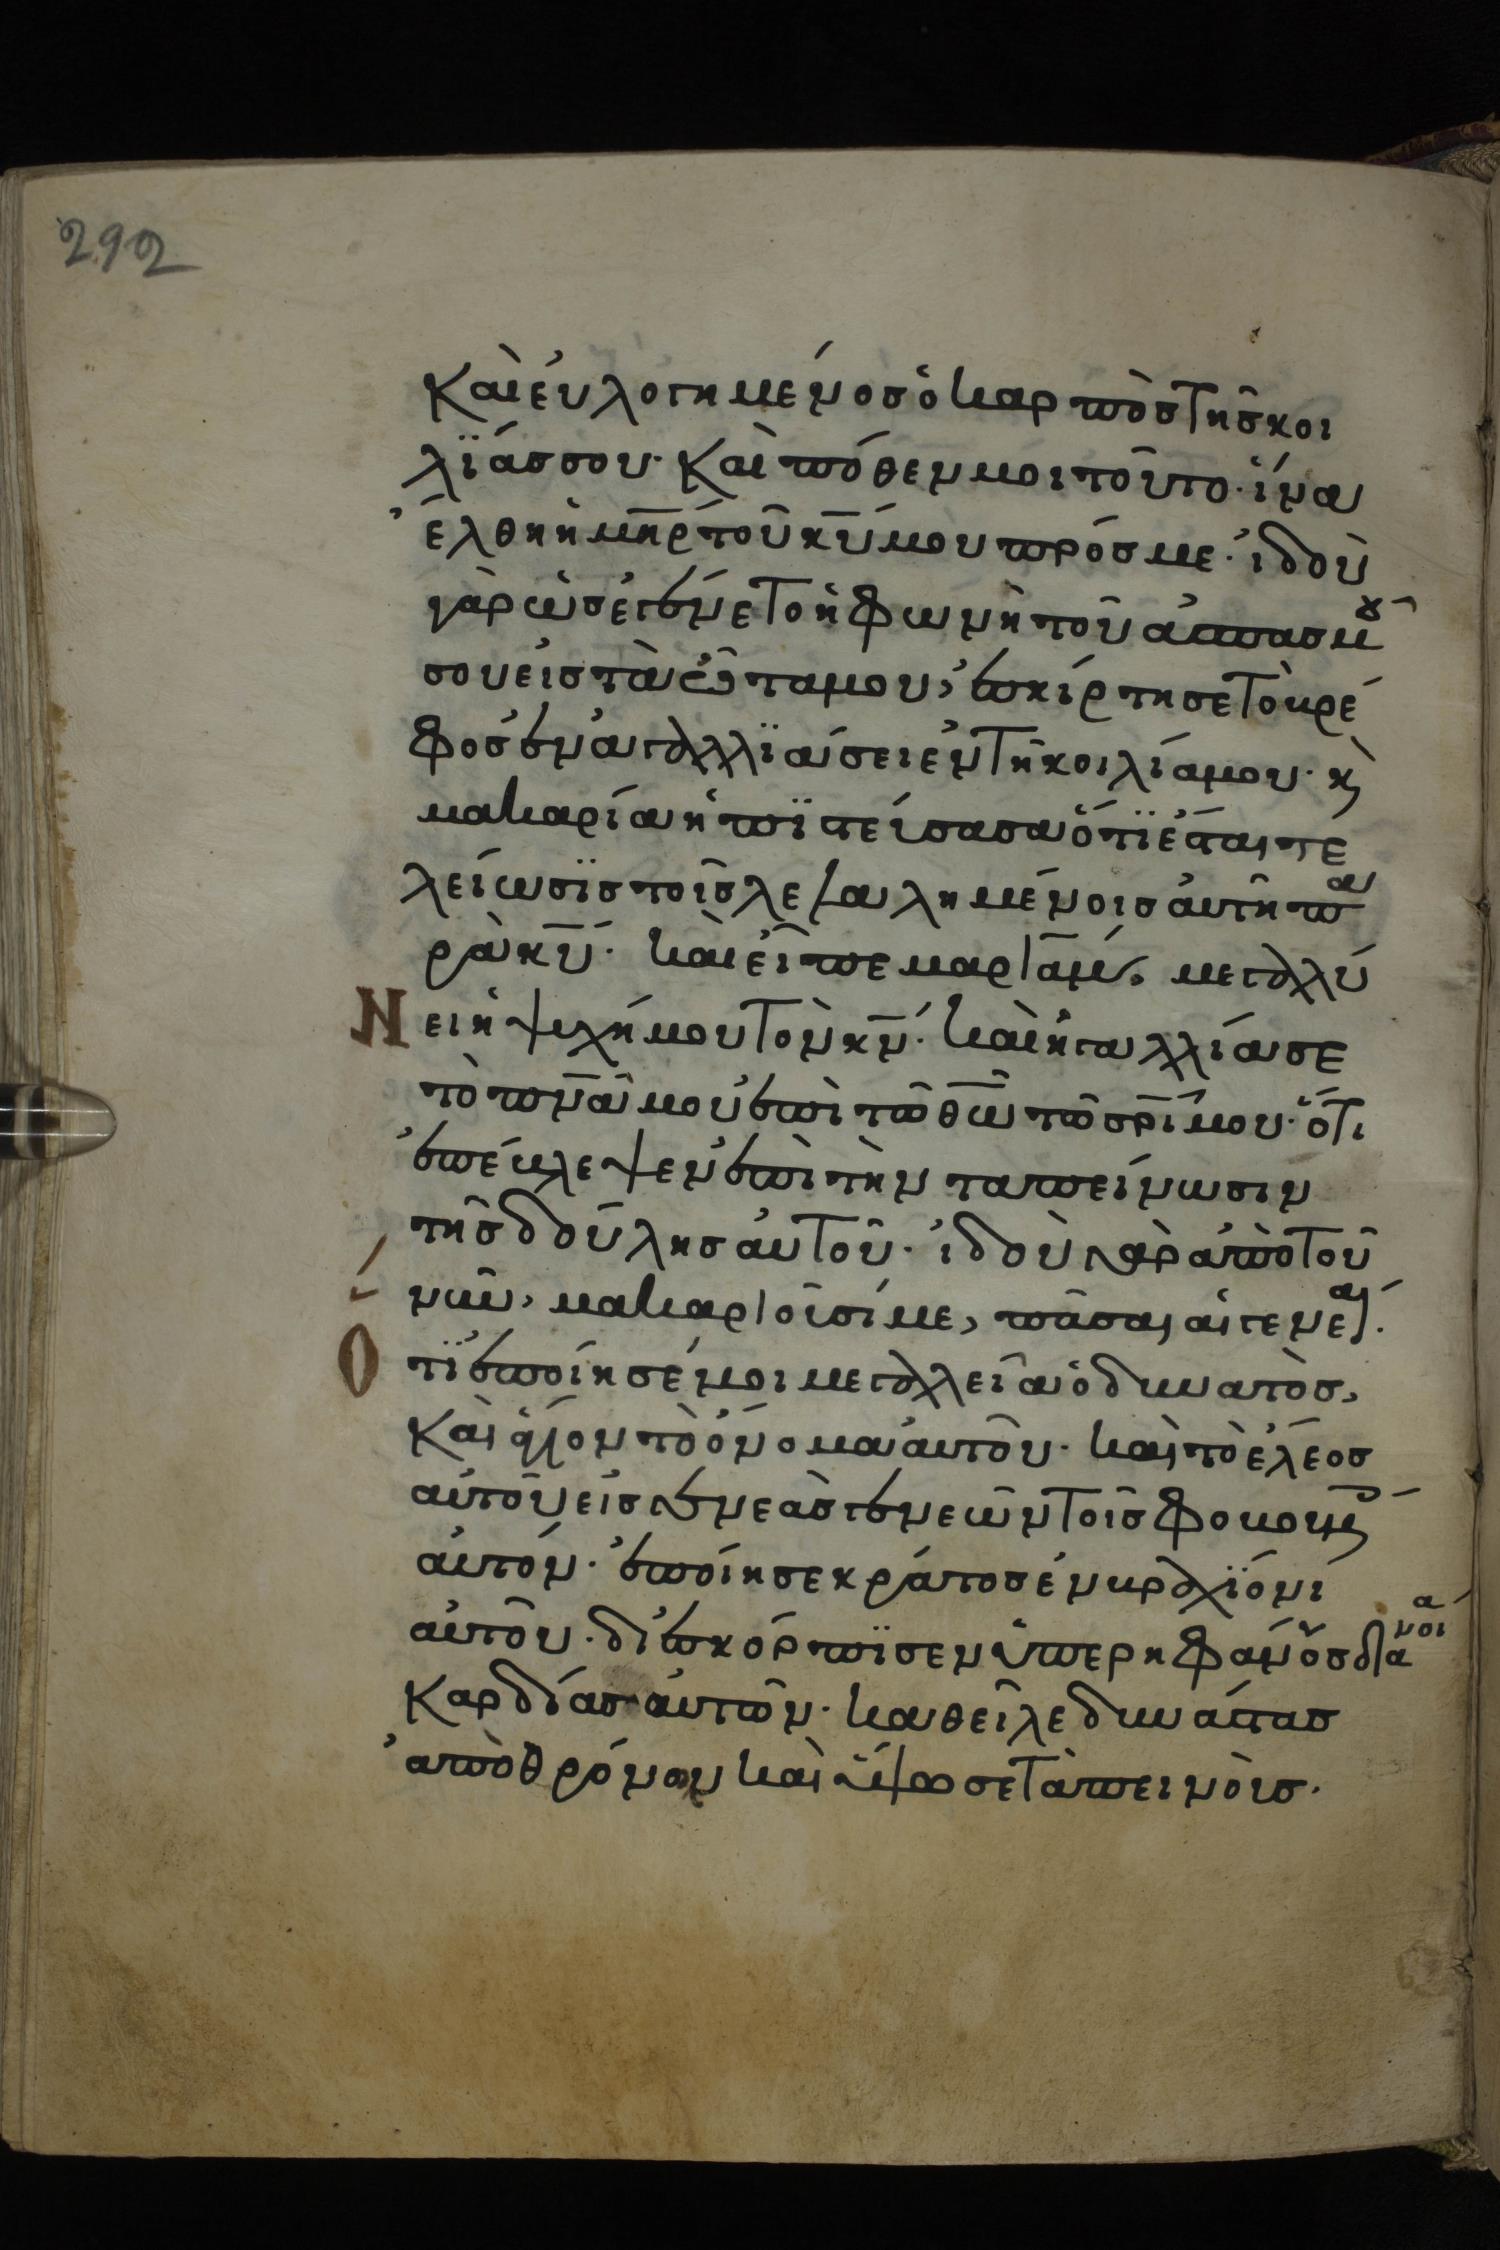 292
Καὶ ἐυλογημένος ὁ καρπὸς τῆς κοι
λϊάς σου· Καὶ πόθεν μοι τοῦτο· ἵνα
ἔλθη ἡ μη̅ρ τοῦ κυ̅ μου πρός με· ἰδοὺ
γὰρ ὡς ἐγένετο ἡ φωνὴ τοῦ ἀσπασμοῦ
σου εἰς τὰ ὦτα μου, ἐσκίρτησε τὸ βρέ
φος ἐν ἀγαλλϊάσει ἐν τῆ κοιλία μου· κ̀
μακαρία ἡ πϊστεύσασα ὅτϊ ἔσται τε
λείωσϊς τοῖς λελαλημένοις ἀυτῆ πα
ρὰ κυ̅· Καὶ εἶπε μαριάμ, μεγαλύ
Νει ἡ ψυχή μου τὸν κν̅· Καὶ ἠγαλλίασε
τὸ πν̅α μου ἐπὶ τῶ θω̅ τῶ σρ̅ι μου· ὅτι
ἐπέβλεψεν ἐπὶ τὴν ταπείνωσιν
τῆς δούλης ἀυτοῦ· ἰδοὺ γὰρ ἀπὸ τοῦ
νῦν, μακαριοῦσί με, πᾶσαι αἱ γενεαί·
Ὅτϊ ἐποίησέ μοι μεγαλεῖα ὁ δυνατὸς,
Καὶ ἅγιον τὸ ὄνομα ἀυτοῦ· Καὶ τὸ ἔλεος
αὐτοῦ εἰς γενεὰς γενεῶν τοῖς φοβουμένοις
ἀυτόν· ἐποίησε κράτος ἐν βραχϊόνι
ἀυτοῦ· δϊεσκόρπϊσεν ὑπερηφάνους διανοία
Καρδίας ἀυτῶν· Καθεῖλε δυνάστας
ἀπὸ θρόνων Καὶ ὕψωσε ταπεινὸυς·